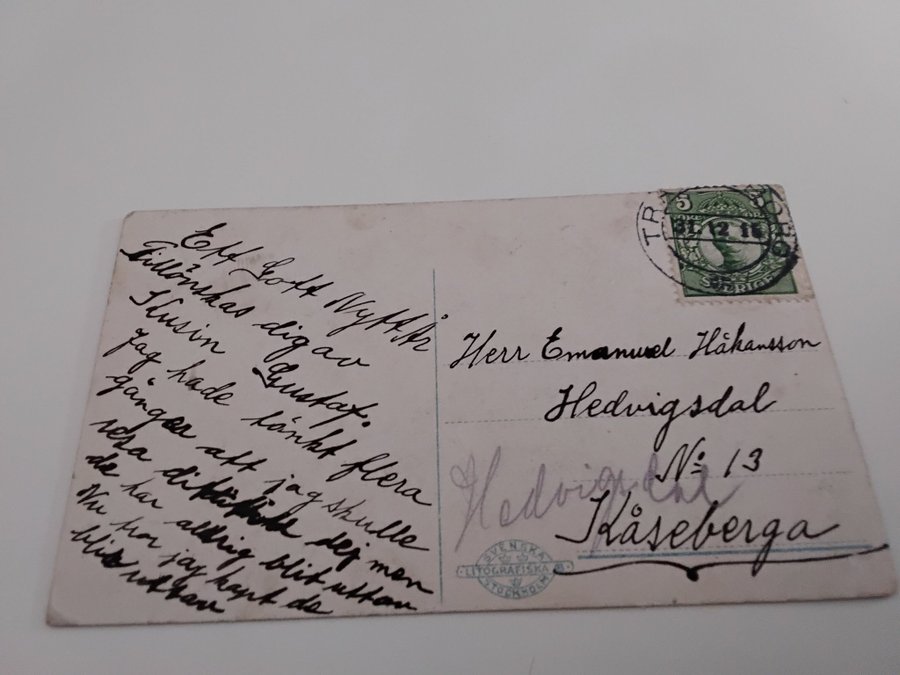 Ett Gott Nytt År
Tillönskas dig av
Kusin Gustaf.
Jag hade tänkt flera
gånger att jag skulle
resa dej men
de har aldrig blit uttan
Nu har jag de
blir uttan
5
ÖRE
SVERIGE
TR
31.12.16
Herr Emanuel Håkansson
Hedvigsdal
No 13
Hedvigsdal
Kåseberga
SVENSKA
LITOGRAFISKA
STOCKHOLM